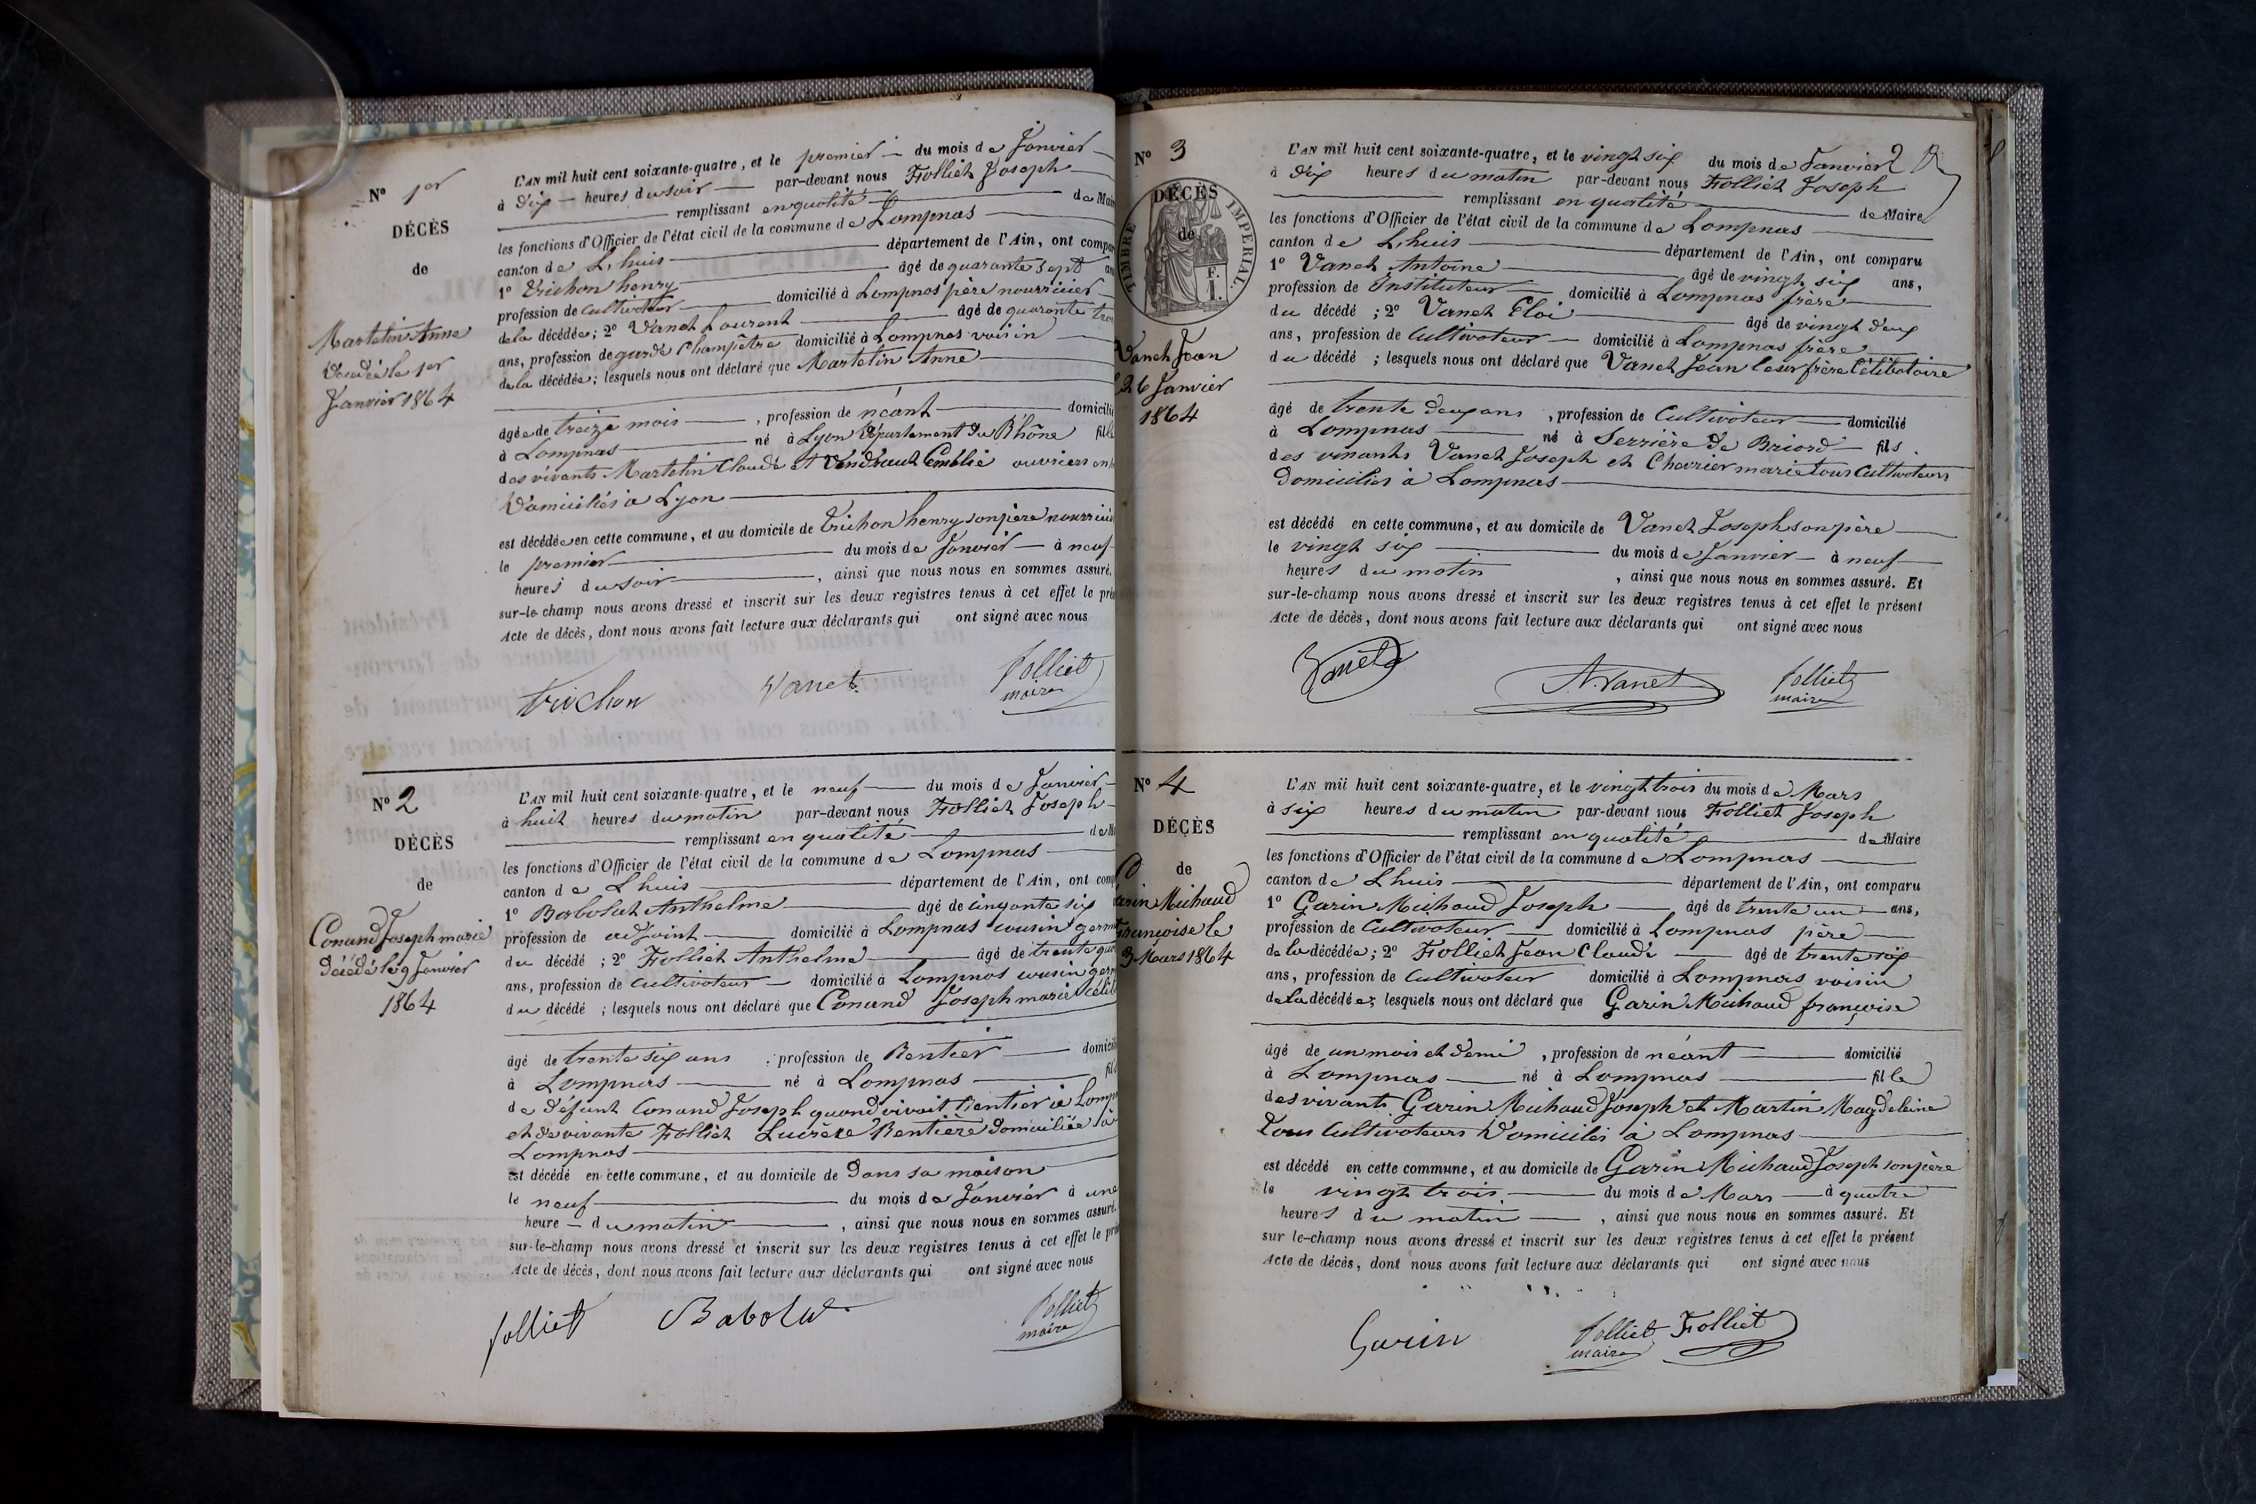 N° 1er
DÉCÈS
de
Martelin Anne
décédée le 1er
Janvier 1864
L'AN mil huit cent soixante-quatre, et le premier du mois de Janvier
à dix heures du soir par-devant nous Folliet Joseph
remplissant en qualité de Mair
les fonctions d'Officier de l'état civil de la commune de Lompnas
canton de Lhuis département de l'Ain, ont compar
1° Trichon henry âgé de quarante sept an
profession de cultivateur domicilié à Lompnas père nourricier
de la décédée ; 2° Vanet Laurent âgé de quarante troi
ans, profession de garde Champêtre domicilié à Lompnas voisin
de la décédée ; lesquels nous ont déclaré que Martelin Anne
âgée de treize mois , profession de néant domicilié
à Lompnas né à Lyon département du Rhône fille
des vivants Martelin Claude et ouvriers
Domiciliés à Lyon
est décédée en cette commune, et au domicile de Trichon henry son père nourricier
le premier du mois de Janvier à neuf
heures du soir , ainsi que nous nous en sommes assuré.
sur-le-champ nous avons dressé et inscrit sur les deux registres tenus à cet effet le pré
Acte de décès, dont nous avons fait lecture aux déclarants qui ont signé avec nous
Trichon Vanet Folliet
maire
N° 2
DÉCÈS
de
Conand Joseph marie
Décédé le 9 Janvier
1864
L'AN mil huit cent soixante-quatre, et le neuf du mois de Janvier
à huit heures du matin par-devant nous Folliet Joseph
remplissant en qualité de M
les fonctions d'Officier de l'état civil de la commune de Lompnas
canton de Lhuis département de l'Ain, ont comp
1° Barbolat Anthelme âgé de cinquante six
profession de adjoint domicilié à Lompnas cousin germ
du décédé ; 2° Folliet Anthelme âgé de trente qua
ans, profession de cultivateur domicilié à Lompnas cousin germ
du décédé ; lesquels nous ont déclaré que Conand Joseph marie célib
âgé de trente six ans , profession de Rentier domicili
à Lompnas né à Lompnas fil
de défunt Conand Joseph quand vivait Rentier à Lomp
et de vivante Folliet Lucrèce Rentière domiciliée à
Lompnas
est décédé en cette commune, et au domicile de Dans sa maison
le neuf du mois de Janvier à une
heure du matin , ainsi que nous nous en sommes assuré.
sur-le-champ nous avons dressé et inscrit sur les deux registres tenus à cet effet le pré
Acte de décès, dont nous avons fait lecture aux déclarants qui ont signé avec nous
Folliet Babolat Folliet
maire
2
N° 3
DÉCÈS
de
TIMBRE IMPÉRIAL.
Vanet Jean
26 Janvier
1864
L'AN mil huit cent soixante-quatre, et le vingt six du mois de Janvier
à dix heures du matin par-devant nous Folliet Joseph
remplissant en qualité de Maire
les fonctions d'Officier de l'état civil de la commune de Lompnas
canton de Lhuis département de l'Ain, ont comparu
1° Vanet Antoine âgé de vingt six ans,
profession de Instituteur domicilié à Lompnas frère
du décédé ; 2° Vanet Eloi âgé de vingt deux
ans, profession de Cultivateur domicilié à Lompnas frère
du décédé ; lesquels nous ont déclaré que Vanet Jean leur frère Célibataire
âgé de trente deux ans , profession de Cultivateur domicilié
à Lompnas né à Serrière de Briord fils
des vivants Vanet Joseph et Chavrier marie tous Cultivateurs
Domiciliés à Lompnas
est décédé en cette commune, et au domicile de Vanet Joseph son père
le vingt six du mois de Janvier à neuf
heures du matin , ainsi que nous nous en sommes assuré. Et
sur-le-champ nous avons dressé et inscrit sur les deux registres tenus à cet effet le présent
Acte de décès, dont nous avons fait lecture aux déclarants qui ont signé avec nous
Vanet A. Vanet Folliet
maire
N° 4
DÉCÈS
de
arin Michaud
françoise le
3 Mars 1864
L'AN mil huit cent soixante-quatre, et le vingt trois du mois de Mars
à six heures du matin par-devant nous Folliet Joseph
remplissant en qualité de Maire
les fonctions d'Officier de l'état civil de la commune de Lompnas
canton de Lhuis département de l'Ain, ont comparu
1° Garin Michaud Joseph âgé de trente un ans,
profession de Cultivateur domicilié à Lompnas père
de la décédée ; 2° Folliet Jean Claude âgé de trente six
ans, profession de Cultivateur domicilié à Lompnas voisin
de la décédée ; lesquels nous ont déclaré que Garin Michaud françoise
âgé de un mois et demi , profession de néant domicilié
à Lompnas né à Lompnas fille
des vivants Garin Michaud Joseph et Martin Magdeleine
tous Cultivateurs Domiciliés à Lompnas
est décédé en cette commune, et au domicile de Garin Michaud Joseph son père
le vingt trois du mois de Mars à quatre
heures du matin , ainsi que nous nous en sommes assuré. Et
sur le-champ nous avons dressé et inscrit sur les deux registres tenus à cet effet le présent
Acte de décès, dont nous avons fait lecture aux déclarants qui ont signé avec nous
Garin Folliet Folliet
maire